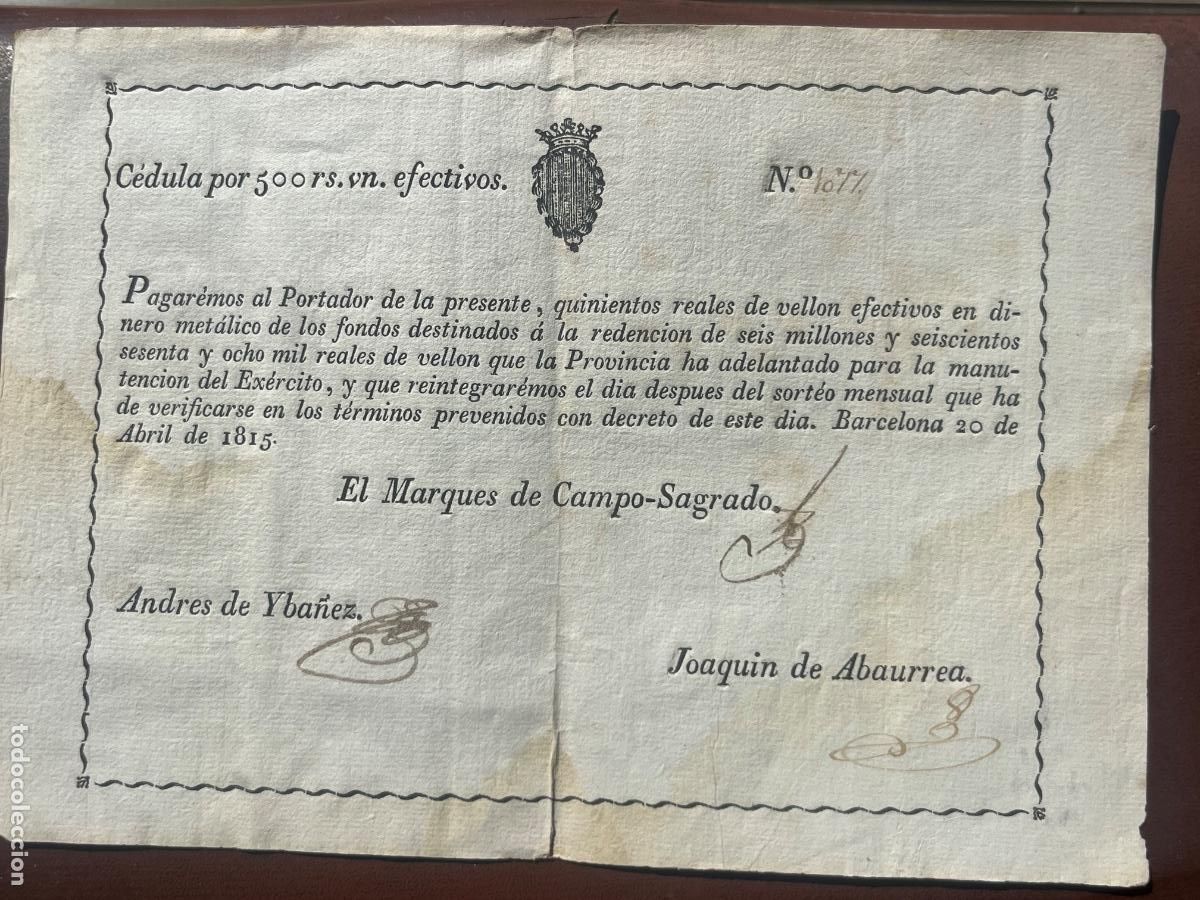 Cédula por 500 rs. vn. efectivos.
N.º
Pagarémos al Portador de la presente, quinientos reales de vellon efectivos en di-
nero metálico de los fondos destinados á la redencion de seis millones y seiscientos
sesenta y ocho mil reales de vellon que la Provincia ha adelantado para la manu-
tencion del Exército, y que reintegrarémos el dia despues del sortéo mensual que ha
de verificarse en los términos prevenidos con decreto de este dia. Barcelona 20 de
Abril de 1815.
El Marques de Campo-Sagrado.
Andres de Ybañez.
Joaquin de Abaurrea.
todocoleccion